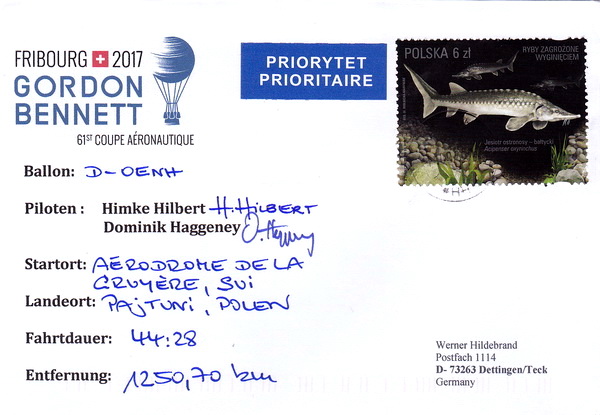 FRIBOURG 2017
GORDON
BENNETT
61ST COUPE AÉRONAUTIQUE
PRIORYTET
PRIORITAIRE
POLSKA 6 zł
RYBY ZAGROŻONE
WYGINIĘCIEM
Jesiotr ostronosy - bałtycki
Acipenser oxyrinchus
Ballon: D-OENH
Piloten : Himke Hilbert H. HILBERT
Dominik Haggeney
Startort: AÉRODROME DE LA
GRUYÈRE, SUI
Landeort: PAJTUNI, POLEN
Fahrtdauer: 44:28
Entfernung: 1250,70 km
Werner Hildebrand
Postfach 1114
D- 73263 Dettingen/Teck
Germany